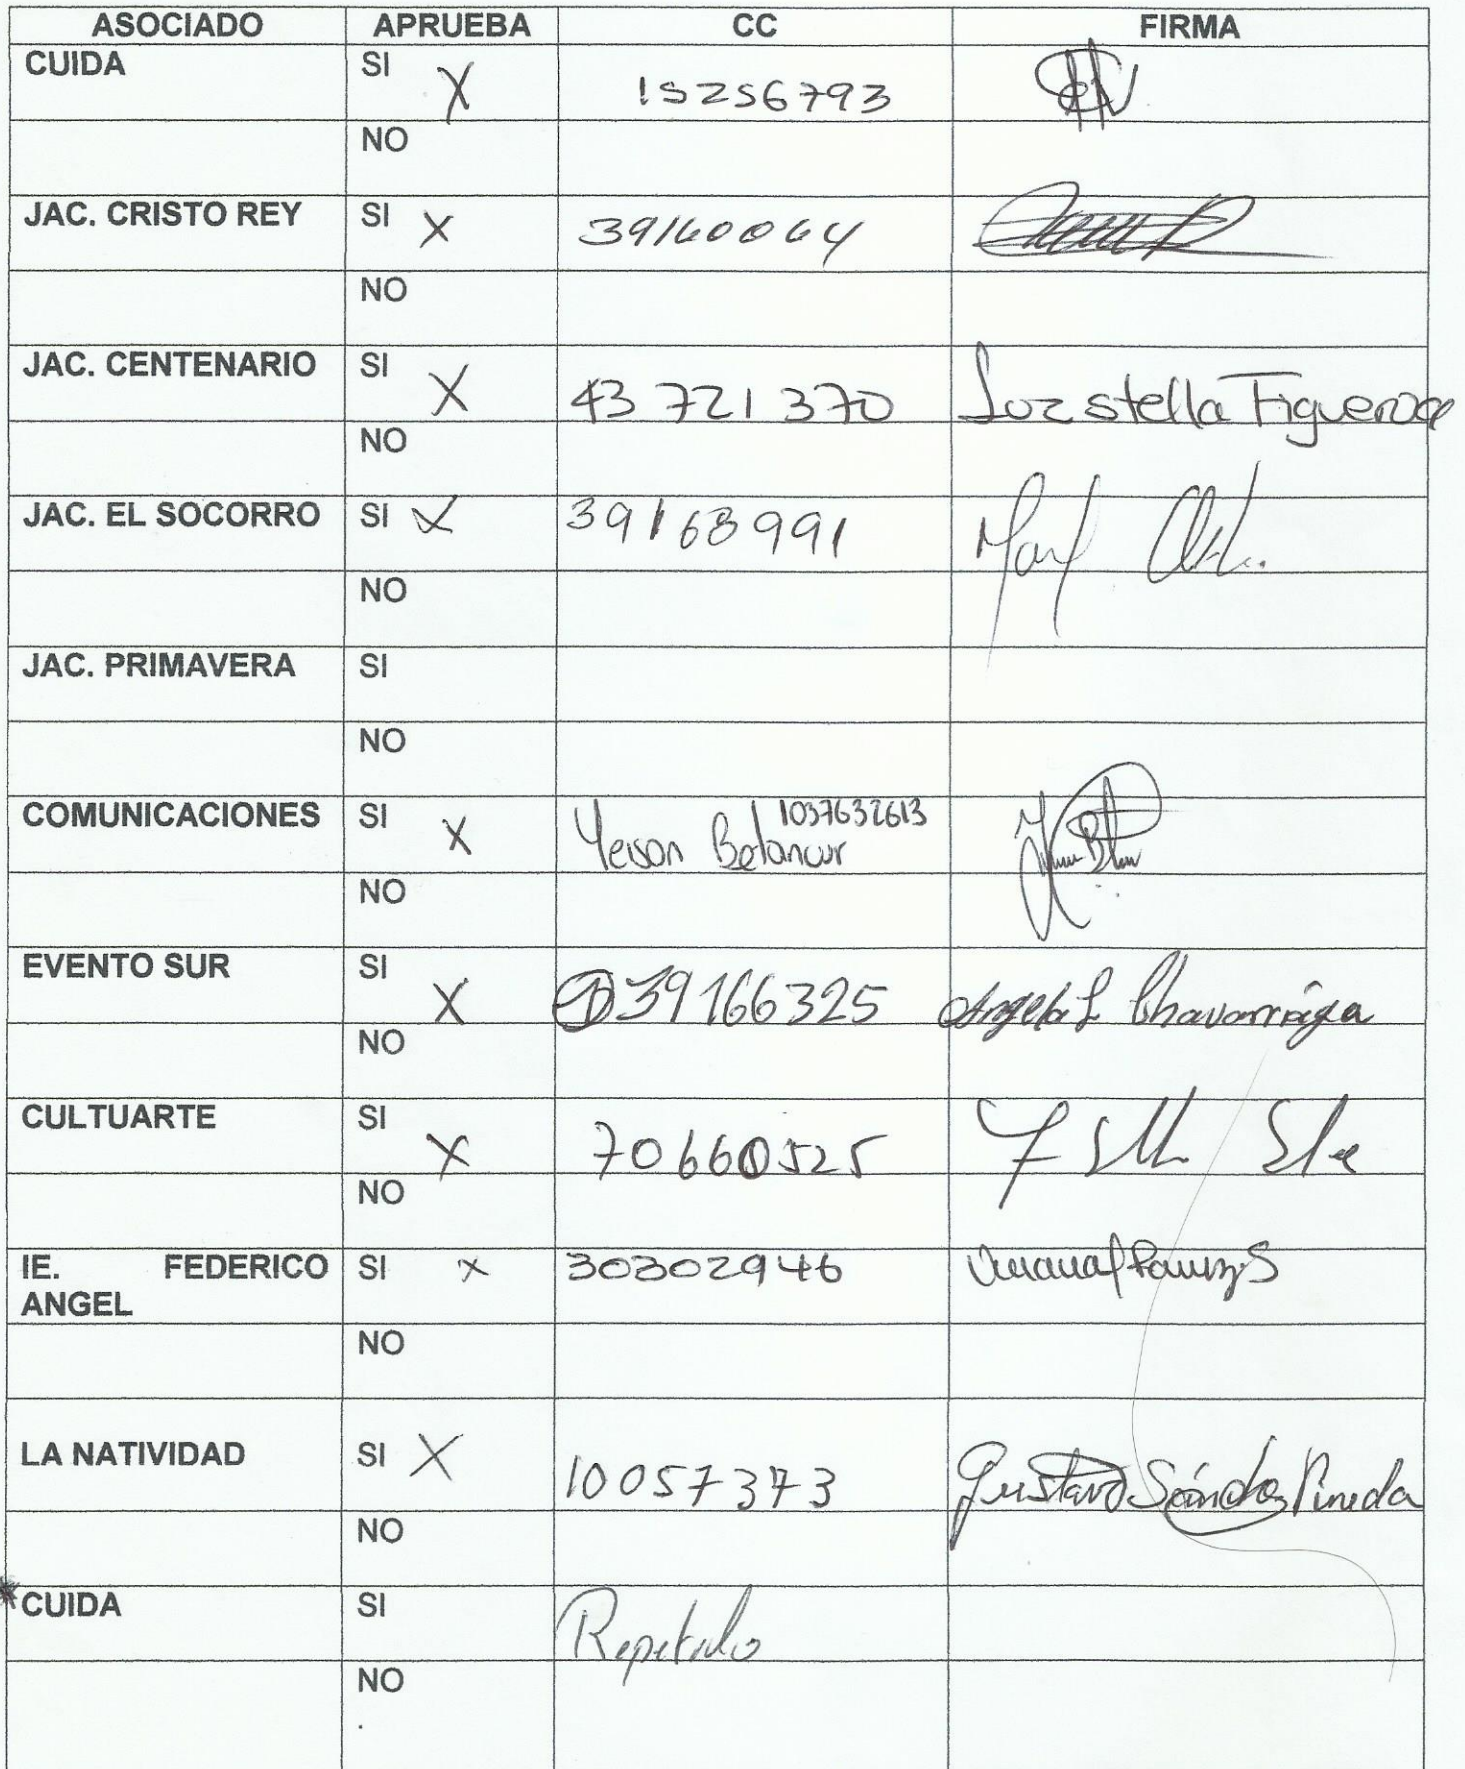 ASOCIADO APRUEBA CC FIRMA
CUIDA SI X 15256793
NO
JAC. CRISTO REY SI X 39160064
NO
JAC. CENTENARIO SI X 43 721 370 Luz stella Figueroa
NO
JAC. EL SOCORRO SI X 39168991
NO
JAC. PRIMAVERA SI
NO
COMUNICACIONES SI X Yeison Betancur 1037632613
NO
EVENTO SUR SI X 39166325 Angela L Chavarriaga
NO
CULTUARTE SI X 70660525
NO
IE. FEDERICO SI X 30302946
ANGEL
NO
LA NATIVIDAD SI X 10057373 Gustavo Sánchez Pineda
NO
*CUIDA SI Repetido
NO